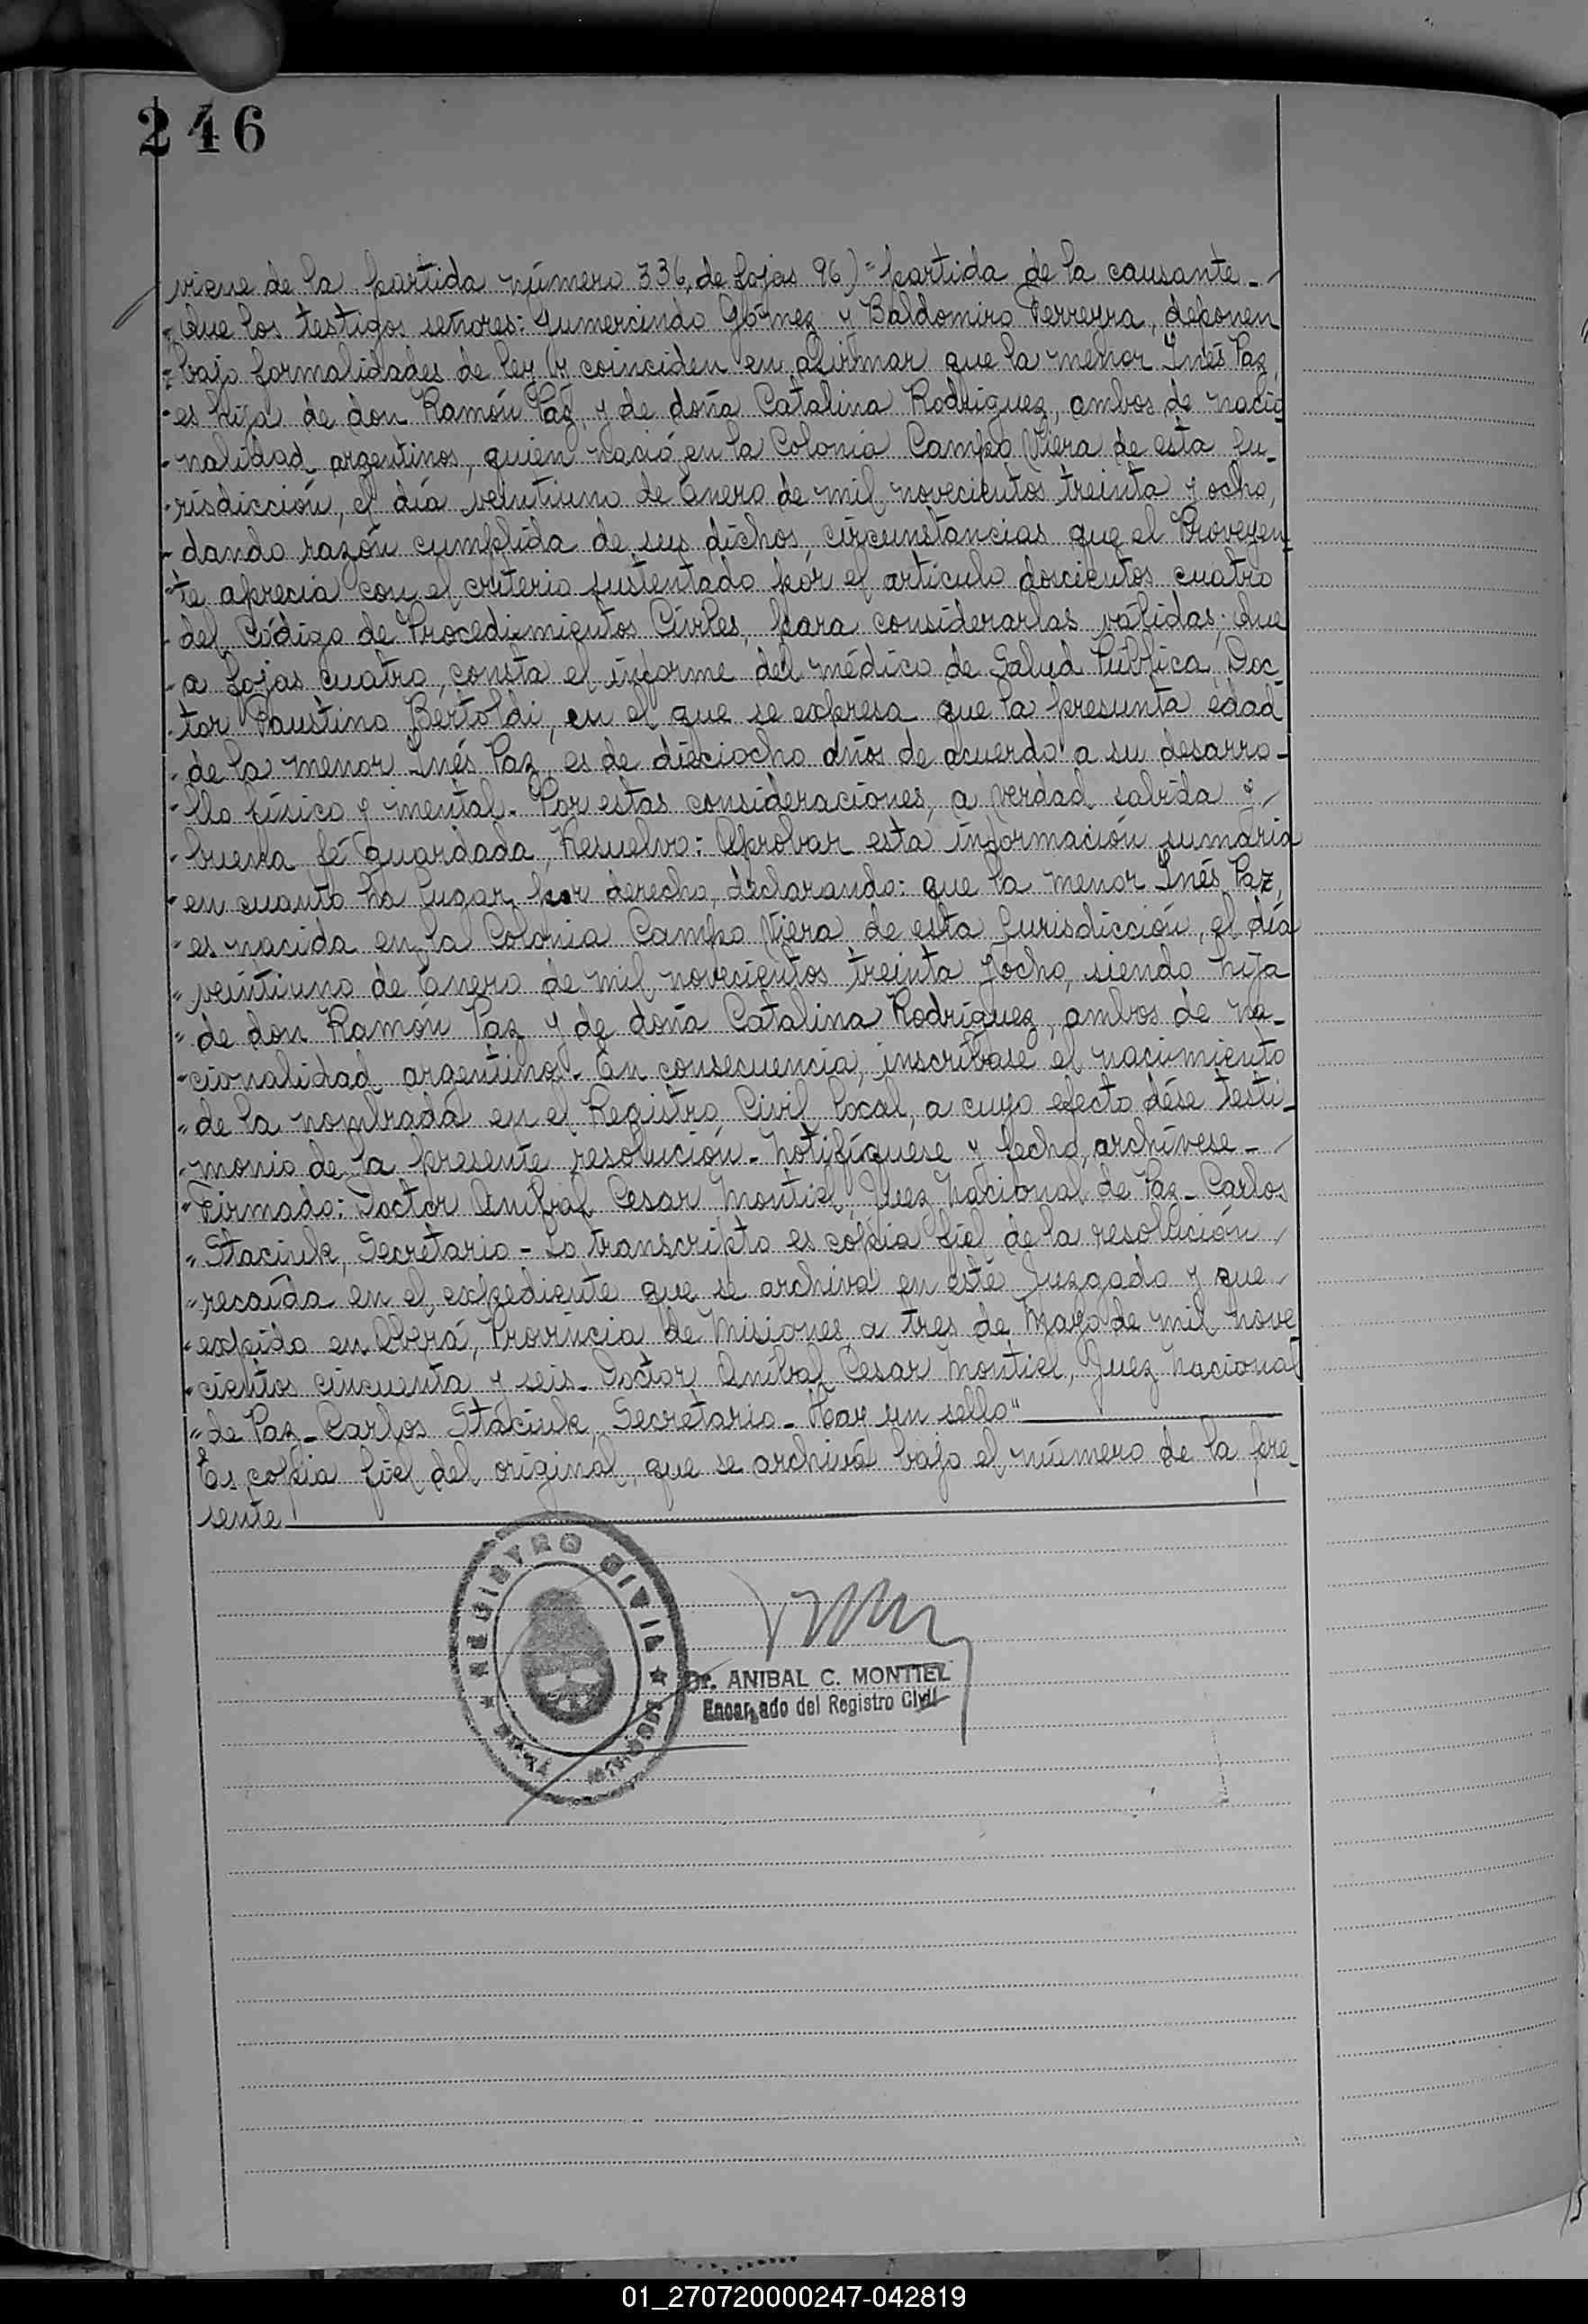 246
viene de la partida número 336, de fojas 96)= partida de la causante.-
"que los testigos señores: Gumercindo Gómez y Baldomiro Ferreyra, deponen
"bajo formalidades de ley y coinciden en afirmar que la menor Inés Paz,
"es hija de don Ramón Paz y de doña Catalina Rodriguez, ambos de nacio
"nalidad argentinos, quien nació en la Colonia Campo Viera de esta Ju-
"risdicción, el día veintiuno de Enero de mil novecientos treinta y ocho,
"dando razón cumplida de sus dichos, circunstancias que el Proveyen-
"te aprecia con el criterio sustentado por el artículo doscientos cuatro
"del Código de Procedimientos Civiles, para considerarlas válidas; que
"a fojas cuatro, consta el informe del médico de Salud Pública, Doc-
"tor Faustino Bertoldi, en el que se expresa que la presunta edad
"de la menor Inés Paz, es de dieciocho años de acuerdo a su desarro-
"llo físico y mental.- Por estas consideraciones, a verdad sabida y
"buena fé guardada, Resuelvo: Aprobar esta información sumaria
"en cuanto ha lugar por derecho, declarando: que la menor Inés Paz,
"es nacida en la Colonia Campo Viera de esta Jurisdicción, el día
"veintiuno de Enero de mil novecientos treinta y ocho, siendo hija
"de don Ramón Paz y de doña Catalina Rodríguez, ambos de na-
"cionalidad argentinos.- En consecuencia, inscríbase el nacimiento
"de la nombrada en el Registro Civil local, a cuyo efecto dése testi-
"monio de la presente resolución.- Notifíquese y fecho, archívese.-
"Firmado: Doctor Anibal Cesar Montiel, Juez Nacional de Paz - Carlos
"Staciuk, Secretario - Lo transcripto es copia fiel de la resolución
"recaída en el expediente que se archiva en este Juzgado y que
"expido en Oberá, Provincia de Misiones a tres de Mayo de mil nove-
"cientos cincuenta y seis.- Doctor Aníbal Cesar Montiel, Juez Nacional
"de Paz - Carlos Staciuk, Secretario - Hay un sello"
Es copia fiel del original, que se archiva bajo el número de la pre-
sente.
REGISTRO CIVIL
OBERA MISIONES
Dr. ANIBAL C. MONTIEL
Encargado del Registro Civil
01_270720000247-042819